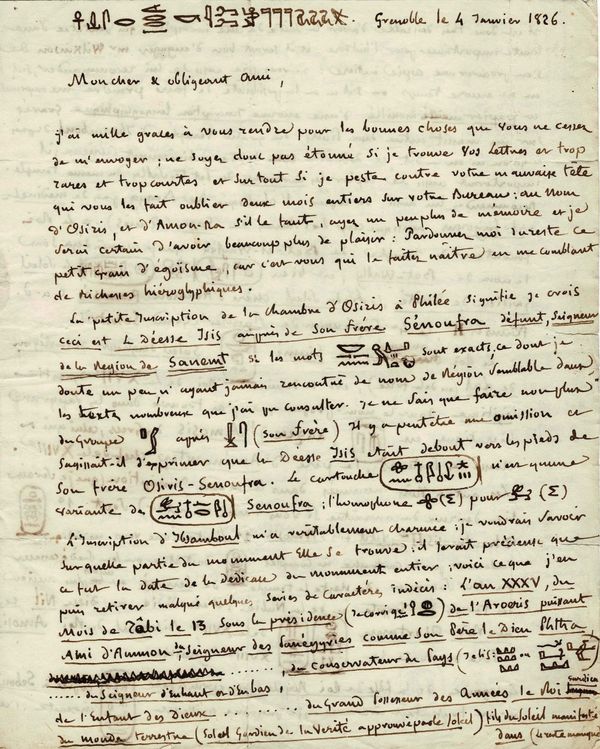 Grenoble le 4 Janvier 1826.
Mon cher & obligeant ami,
j'ai mille graces à vous rendre pour les bonnes choses que vous ne cessez
de m'envoyer ; ne soyez donc pas étonné si je trouve vos lettres et trop
rares et trop courtes et surtout si je peste contre votre mauvaise tête
qui vous les fait oublier deux mois entiers sur votre Bureau ; au nom
d'Osiris, et d'Amon-ra s'il le faut, ayez un peu plus de mémoire et je
serai certain d'avoir beaucoup plus de plaisir : Pardonnez moi au reste ce
petit grain d'égoïsme, car c'est vous qui le faites naître en me comblant
de Richesses hiéroglyphiques.
La petite Inscription de la chambre d'Osiris à Philée signifie je crois
ceci est la Déesse Isis auprès de son frère Sénoufra défunt, Seigneur
de la Région de Sanemt si les mots sont exacts, ce dont je
doute un peu n'ayant jamais rencontré de nom de Région semblable dans
les textes nombreux que j'ai pu consulter. Je ne sais que faire non plus
du Groupe après (son frère) Il y a peut être une omission et
s'agissait-il d'exprimer que la Déesse Isis était debout vers les pieds de
son frère Osiris-Senoufra. Le cartouche n'est qu'une
variante de Senoufra ; l'homophone (Σ) pour (Σ)
L'Inscription d'Ibsamboul m'a véritablement charmée : je voudrais savoir
sur quelle partie du monument Elle se trouve : il serait précieux que
ce fut la date de la dédicace du monument entier ; voici ce que j'en
puis retirer malgré quelques series de caractères indécis : L'an XXXV, du
Mois de Tôbi le 13 sous la présidence (je corrige) de l'Aroeris puissant
Ami d'Ammon, Seigneur des panégyries comme son Père le Dieu Phtha
du conservateur du Pays (je lis : ou)
du Seigneur d'Enhaut et d'Enbas, du Grand Possesseur des Années le Roi
de l'Enfant des Dieux (Soleil Gardien de la Vérité approuvé par le Soleil) fils du Soleil manifesté
du monde terrestre dans